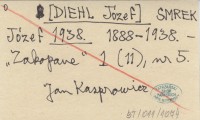 [DIEHL Józef] SMREK
Józef 1938. 1888-1938. -
"Zakopane" 1 (11), nr 5.
Jan Kasprowicz